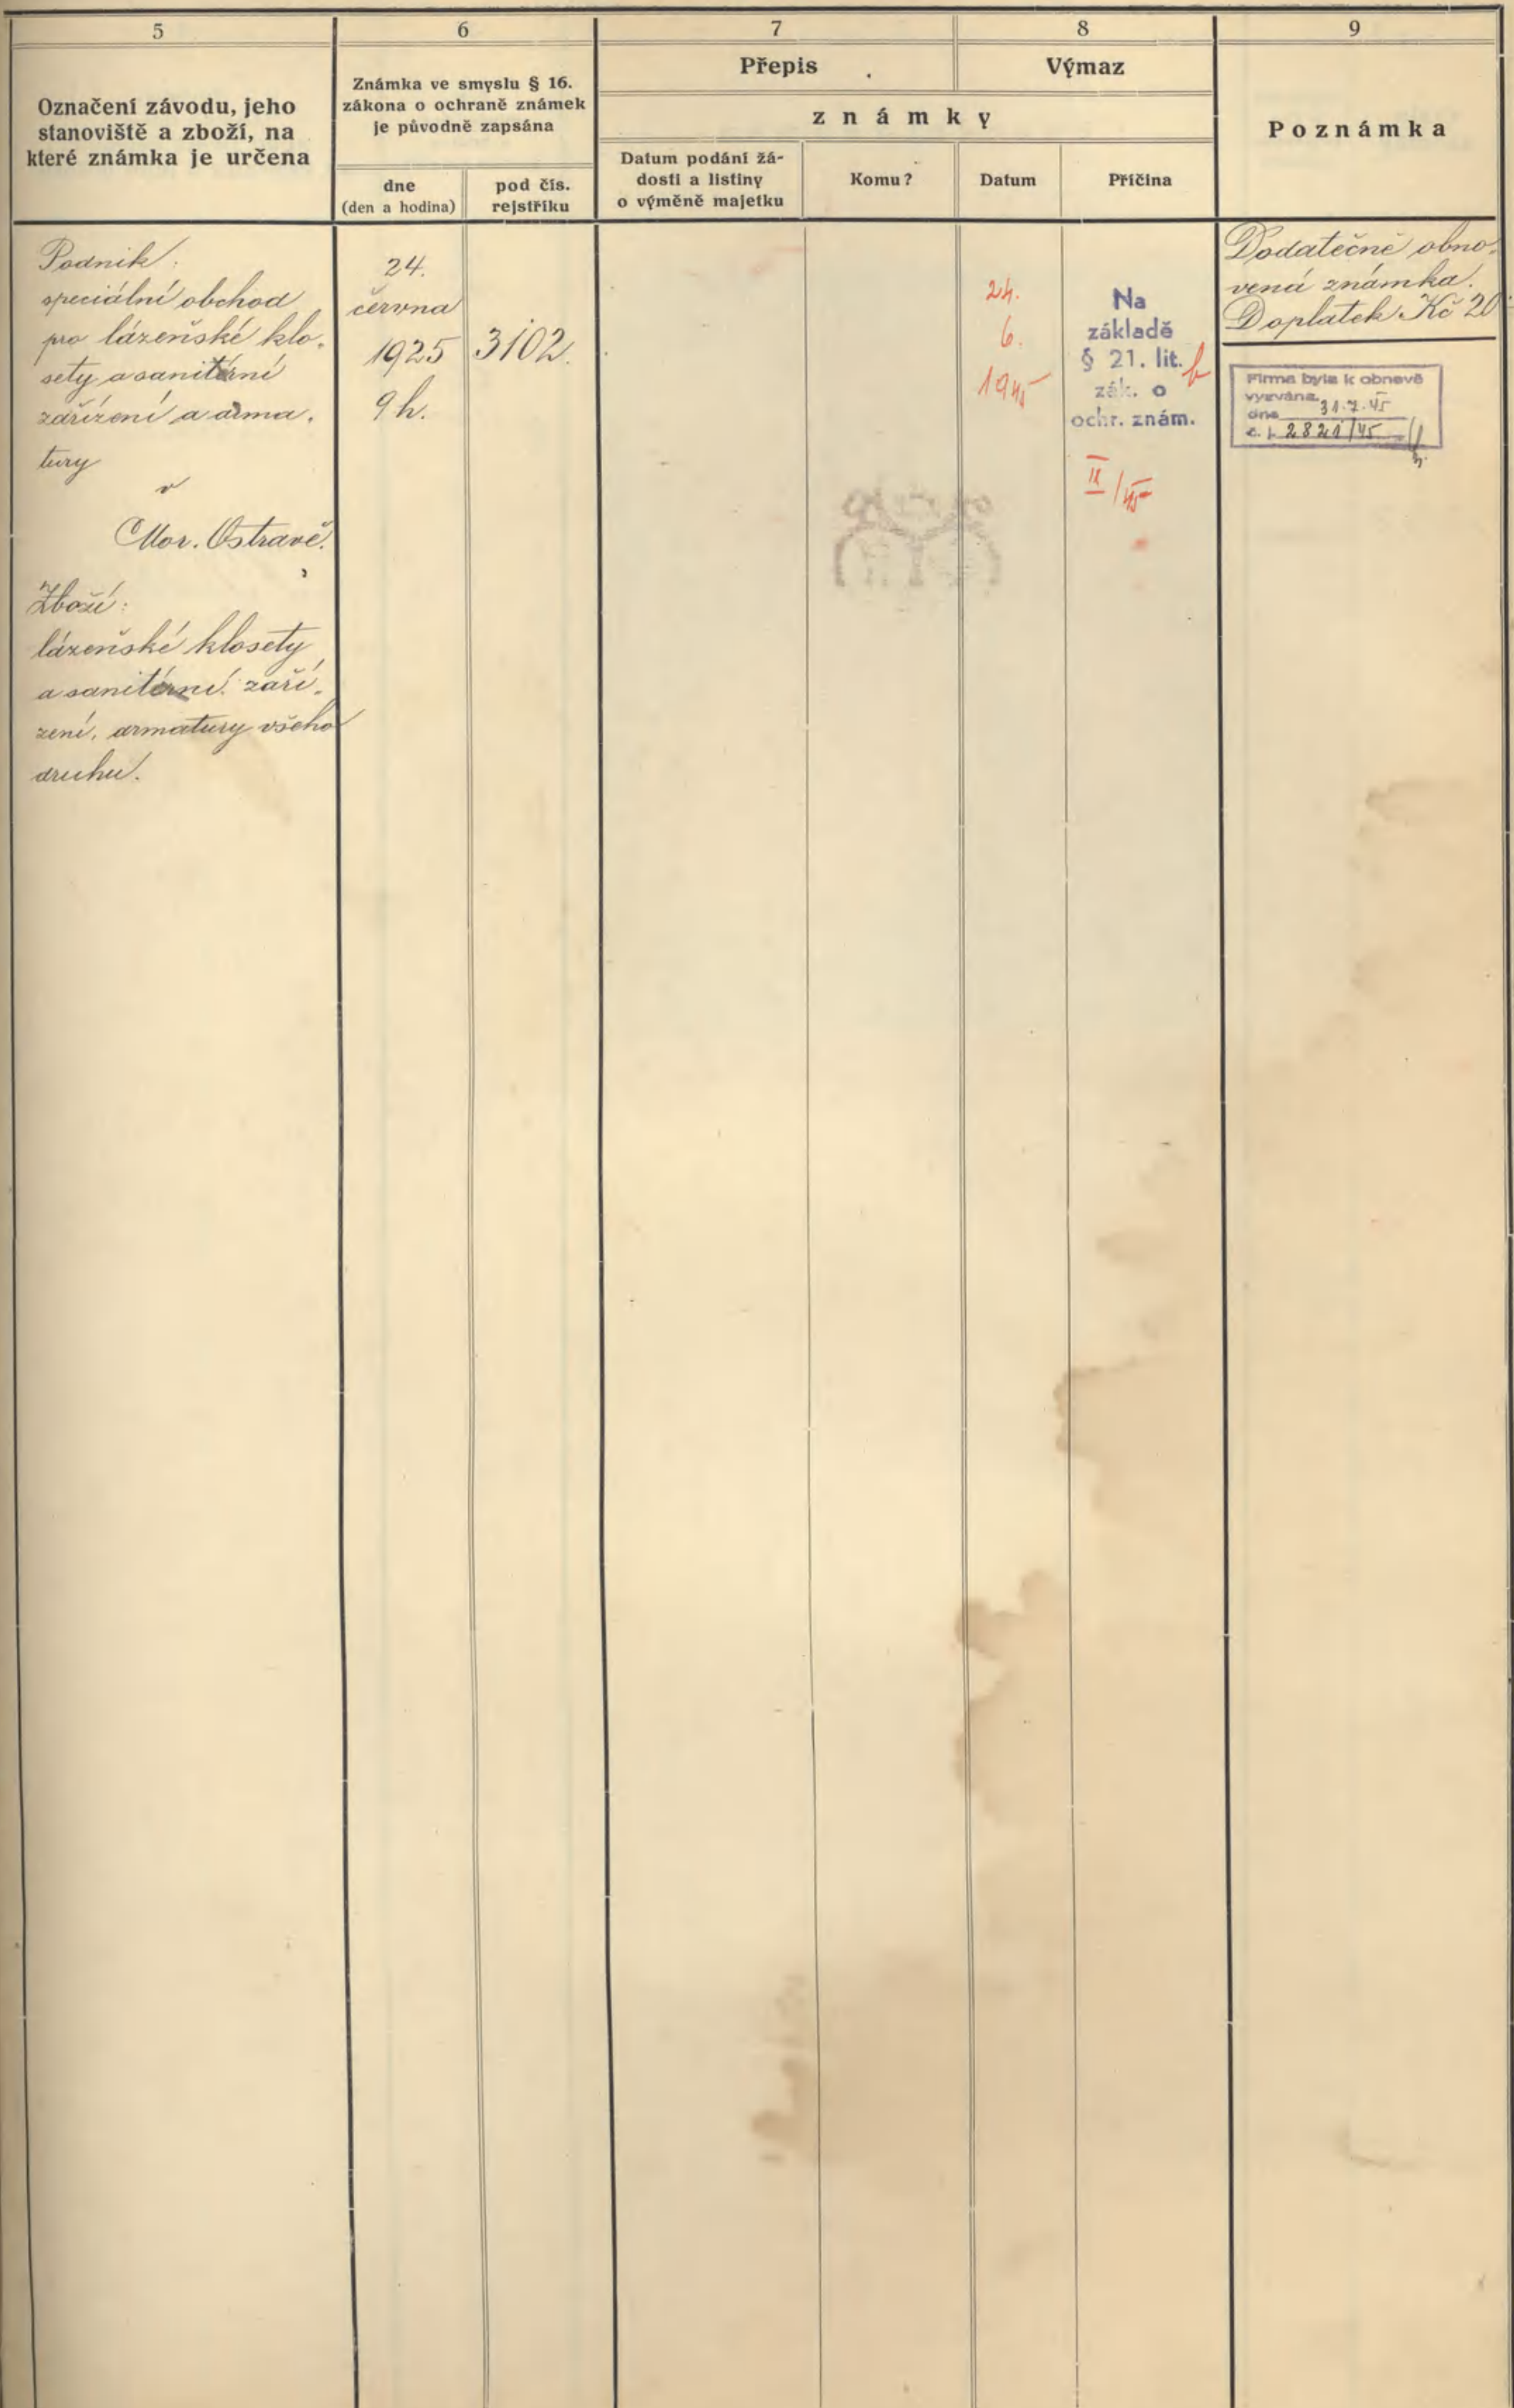 5
6
7
8
9
Označení závodu, jeho
stanoviště a zboží, na
které známka je určena
Známka ve smyslu § 16.
zákona o ochraně známek
je původně zapsána
dne
(den a hodina)
pod čís.
rejstříku
Přepis
Výmaz
známky
Datum podání žá-
dosti a listiny
o výměně majetku
Komu?
Datum
Příčina
Poznámka
Podnik:
speciální obchod
pro lázeňské klo-
sety a sanitérní
zařízení a arma-
tury
v
Mor. Ostravě.
Zboží:
lázeňské klosety
a sanitérní zaří-
zení, armatury všeho
druhu.
24.
června
1925
9 h.
3102.
24.
6.
1945
Na
základě
§ 21. lit. b
zák. o
ochr. znám.
IX/45
Dodatečně obno-
vená známka.
Doplatek Kč 20
Firma byla k obnově
vyzvána
dne 31.7.45
č. j. 2821/45